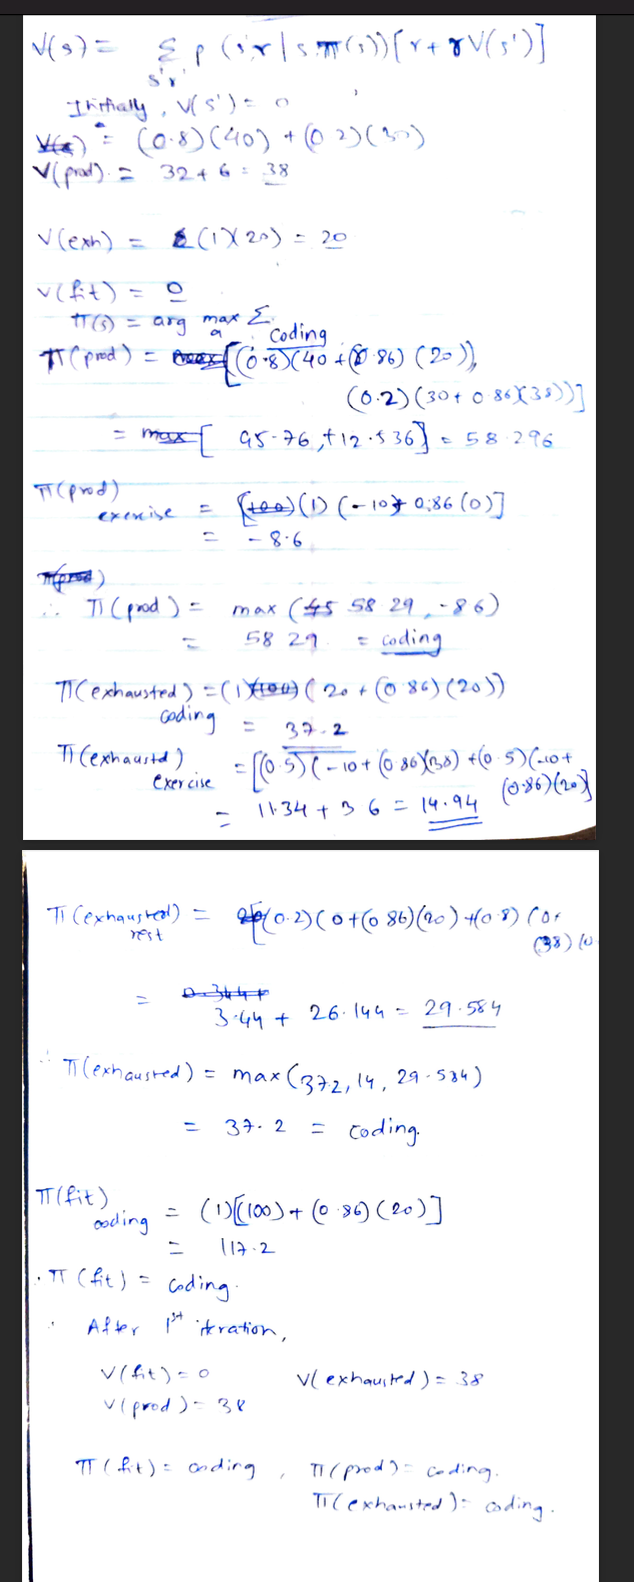 V(s) = Σ p (s'r | s π(s)) [r + γ V(s')]
s'r'
Initially, V(s') = 0
= (0.8)(40) + (0.2)(30)
V(prod) = 32 + 6 = 38
V(exh) = (1)(20) = 20
V(fit) = 0
π(s) = arg max Σ
a
coding
π(prod) = [(0.8)(40 + (0.86) (20)),
(0.2)(30 + 0.86)(38))]
= max [ 45.76, + 12.536] = 58.296
π(prod) exercise = [(100)(1) (-10 + 0.86 (0)]
= -8.6
π(prod)
∴ π(prod) = max (45 58.29, -8.6)
= 58.29 = coding
π(exhausted) coding = (1)(100)( 20 + (0.86)(20))
= 37.2
π(exhaustd) exercise = [(0.5)(-10 + (0.86)(38) + (0.5)(-10 +
(0.86)(20)]
= 11.34 + 3.6 = 14.94
π(exhausted) rest = [(0.2)(0 + (0.86)(20) + (0.8) (0 +
(38)(0
0.344 +
= 3.44 + 26.144 = 29.584
∴ π(exhausted) = max (37.2, 14, 29.584)
= 37.2 = coding.
π(fit) coding = (1)[(100) + (0.86)(20)]
= 117.2
∴ π(fit) = coding.
∴ After 1st itration,
V(fit) = 0 V(exhausted) = 38
V(prod) = 38
π(fit) = coding, π(prod) = coding.
π(exhausted) = coding.